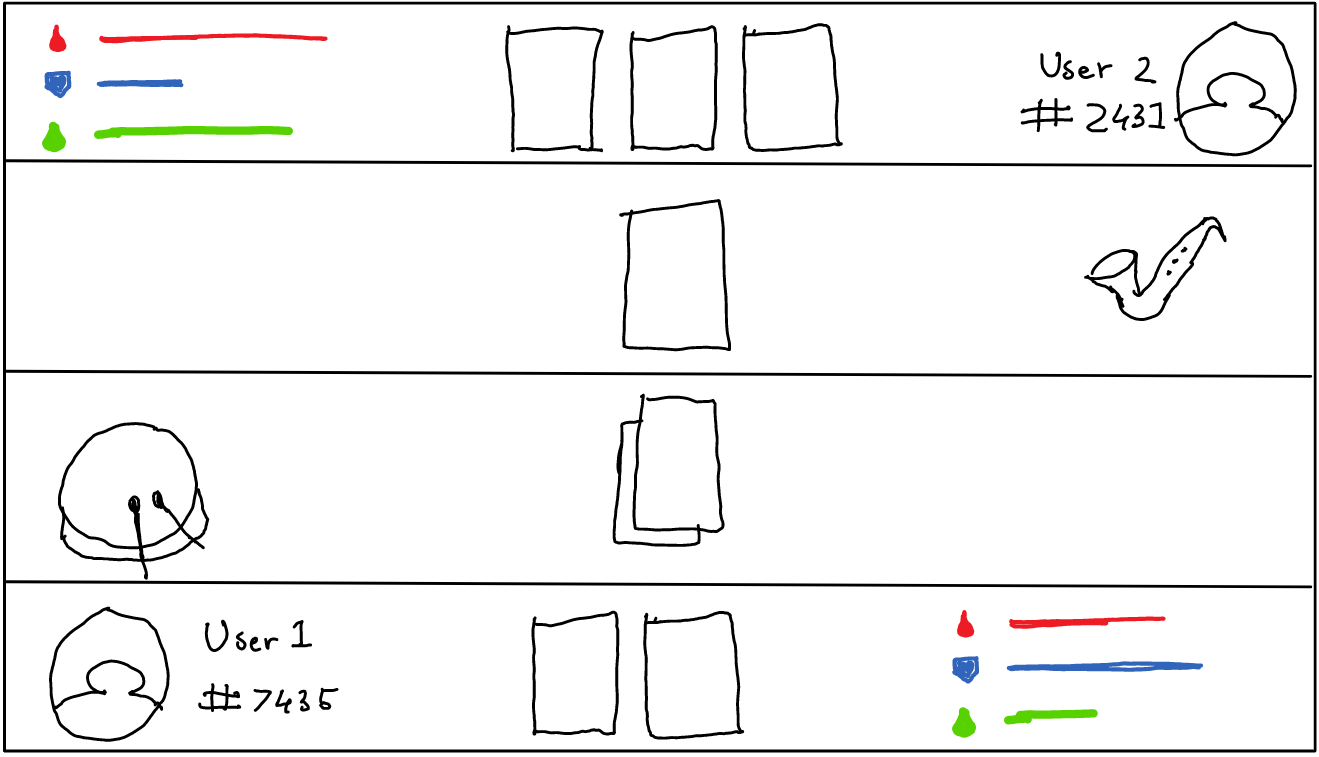 User 2
# 2431
User 1
# 7435